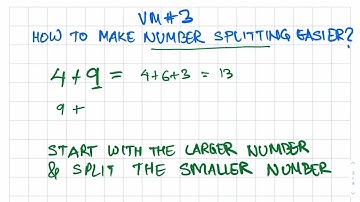 VM#3
HOW TO MAKE NUMBER SPLITTING EASIER?
4+9 = 4+6+3 = 13
9 +
START WITH THE LARGER NUMBER
& SPLIT THE SMALLER NUMBER